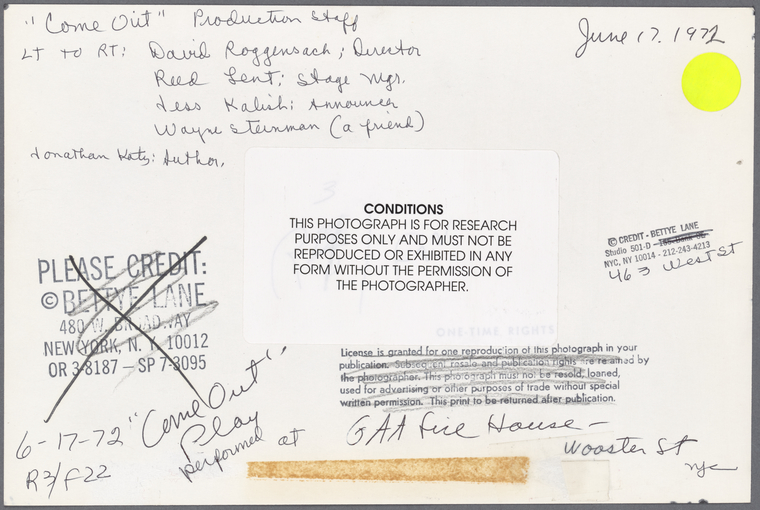 "Come Out" Production Staff
June 17, 1972
LT TO RT: David Roggensach; Director
Reed Lent; Stage Mgr.
Jess Kalish: Announcer
Wayne Steinman (a friend)
Jonathan Katz: Author.
CONDITIONS
THIS PHOTOGRAPH IS FOR RESEARCH
PURPOSES ONLY AND MUST NOT BE
REPRODUCED OR EXHIBITED IN ANY
FORM WITHOUT THE PERMISSION OF
THE PHOTOGRAPHER.
© CREDIT - BETTYE LANE
Studio 501-D -
NYC, NY 10014 - 212-243-4213
463 West St
PLEASE CREDIT:
© BETTYE LANE
480 W. BROADWAY
NEW YORK, N. Y. 10012
OR 3-8187 — SP 7-3095
ONE-TIME RIGHTS
License is granted for one reproduction of this photograph in your
publication. Subsequent resale and publication rights are retained by
the photographer. This photograph must not be resold, loaned,
used for advertising or other purposes of trade without special
written permission. This print to be returned after publication.
6-17-72 "Come Out"
Play
performed at GAA Fire House —
Wooster St
nyc
R3/F22